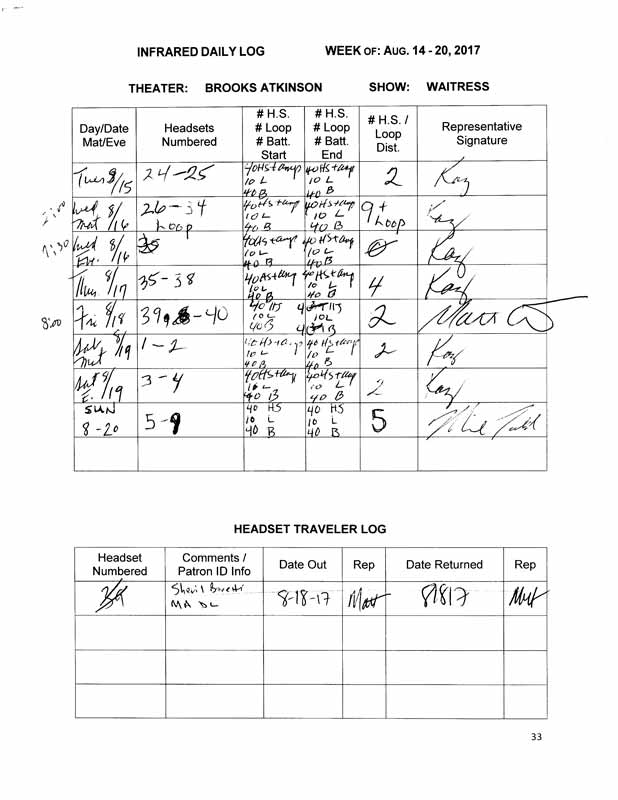 INFRARED DAILY LOG WEEK OF: AUG. 14 - 20, 2017
THEATER: BROOKS ATKINSON SHOW: WAITRESS
Day/Date Mat/Eve Headsets Numbered # H.S. # Loop # Batt. Start # H.S. # Loop # Batt. End # H.S. / Loop Dist. Representative Signature
Tues 8/15 24-25 40HS+amp 10 L 40 B 40HS+amp 10 L 40 B 2 Kay
2:00 Wed 8/16 Mat 26-34 Loop 40HS+amp 10 L 40 B 40HS+amp 10 L 40 B 9+ Loop Kay
7:30 Wed 8/16 Ev. 40HS+amp 10 L 40 B 40HS+amp 10 L 40 B 0 Kay
Thu. 8/17 35-38 40HS+amp 10 L 40 B 40HS+amp 10 L 40 B 4 Kay
8:00 Fri 8/18 39-40 40 HS 10 L 40 B 10L 2 Matt
Sat 8/19 Mat 1-2 40 HS+amp 10 L 40 B 40 HS+amp 10 L 40 B 2 Kay
Sat 8/19 E. 3-4 40HS+amp 10 L 40 B 40HS+amp 10 L 40 B 2 Kay
SUN 8-20 5-9 40 HS 10 L 40 B 40 HS 10 L 40 B 5
HEADSET TRAVELER LOG
Headset Numbered Comments / Patron ID Info Date Out Rep Date Returned Rep
MA DL 8-18-17 Matt 81817 Matt
33